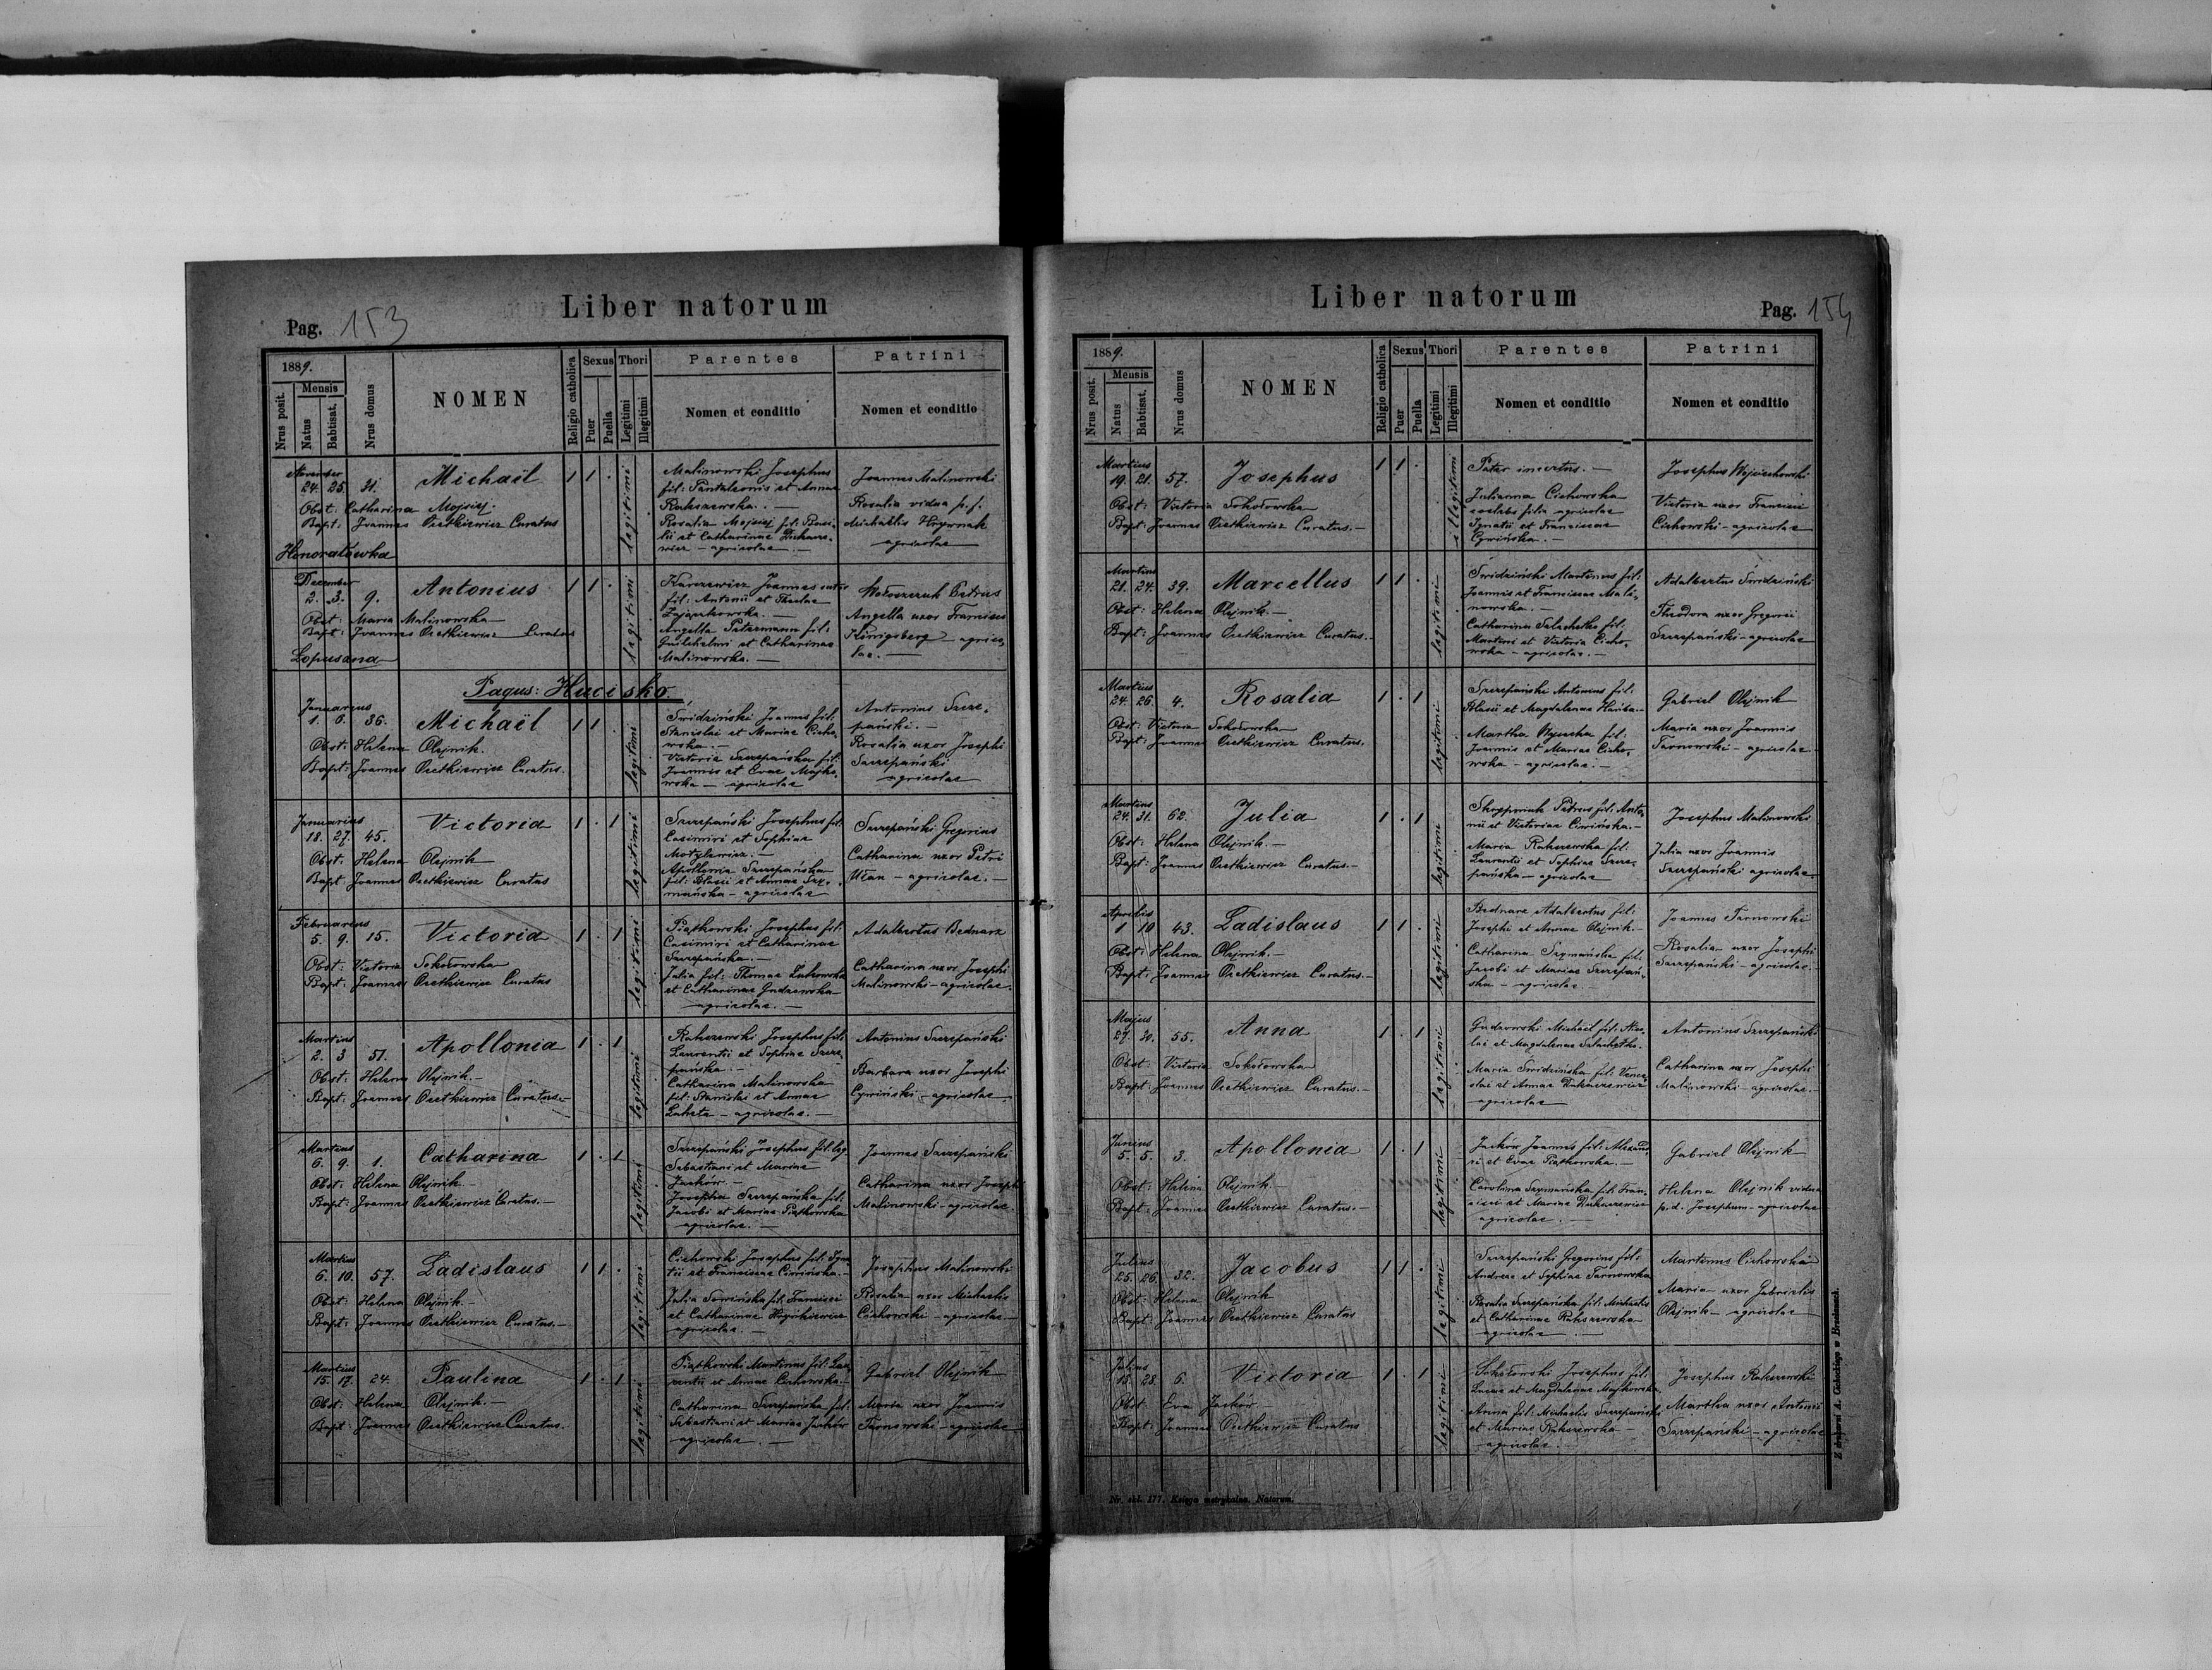 Liber natorum
Pag. 153
1889.
Mensis
Nrus posit.
Natus
Babtisat.
Nrus domus
NOMEN
Religio catholica
Sexus
Puer
Puella
Thori
Legitimi
Illegitimi
Parentes
Nomen et conditio
Patrini
Nomen et conditio
November
24. 25. 31. Michaël 1 1 . legitimi
Obst: Catharina Mojsiej.
Bapt: Joannes Curatus
Honoratówka
Malinowski Josephus
fil: Pantaleonis et Annae
Rakszewska. —
Rosalia Mojsiej fil: Basi-
lii et Catharinae
— agricolae. —
Joannes Malinowski
Rosalia vidua p. f.
Michaelis
agricolae
December
2. 3. 9. Antonius 1 1 . legitimi
Obst: Maria Malinowska
Bapt: Joannes Curatus
Lopuszna
Karczewicz Joannes
fil: Antonii et Theclae
Zajączkowska.
Angella Petermann fil:
Guilhelmi et Catharinae
Malinowska. —
Petrus
Angella uxor Francisci
Königsberg — agrico-
lae. —
Pagus: Hucisko.
Januarius
1. 6. 36. Michaël 1 1 . legitimi
Obst: Helena Olejnik.
Bapt: Joannes Curatus.
Świdziński Joannes fil:
Stanislai et Mariae Cicho-
wska. —
Victoria Szczepańska fil:
Joannis et Evae Majko-
wska — agricolae
Antonius Szcze-
pański. —
Rosalia uxor Josephi
Szczepański
agricolae
Januarius
18. 27. 45. Victoria 1 . 1 legitimi
Obst: Helena Olejnik
Bapt: Joannes Curatus
Szczepański Josephus fil:
Casimiri et Sophiae
Motylewicz. —
Apollonia Szczepańska
fil: Blasii et Annae Szy-
mańska — agricolae
Szczepański Gregorius
Catharina uxor Petri
— agricolae. —
Februarius
5. 9. 15. Victoria 1 . 1 legitimi
Obst: Victoria Sokołowska
Bapt: Joannes Curatus
Piątkowski Josephus fil:
Casimiri et Catharinae
Szczepańska. —
Julia fil: Thomae
et Catharinae Gudzowska
agricolae. —
Adalbertus Bednarz
Catharina uxor Josephi
Malinowski — agricolae.
Martius
2. 3 51. Apollonia 1 . 1 legitimi
Obst: Helena Olejnik. —
Bapt: Joannes Curatus. —
Rakszewski Josephus fil:
Laurentii et Sophiae Szcze-
pańska. —
Catharina Malinowska
fil: Stanislai et Annae
— agricolae. —
Antonius Szczepański
Barbara uxor Josephi
Cywiński — agricolae
Martius
6. 9. 1. Catharina 1 . 1 legitimi
Obst: Helena Olejnik. —
Bapt: Joannes Curatus. —
Szczepański Josephus fil: leg.
Sebastiani et Mariae
Jacków —
Josepha Szczepańska fil:
Jacobi et Mariae Piątkowska
agricolae. —
Joannes Szczepański
Catharina uxor Josephi
Malinowski — agricolae.
Martius
6. 10. 57. Ladislaus 1 1 . legitimi
Obst: Helena Olejnik. —
Bapt: Joannes Curatus. —
Cichowski Josephus fil: Igna-
tii et Franciscae Ciwińska. —
Julia fil: Francisci
et Catharinae
agricolae. —
Josephus Malinowski
Rosalia uxor Michaelis
Cichowski — agricolae —
Martius
15. 17. 24. Paulina 1 . 1 legitimi
Obst: Helena Olejnik. —
Bapt: Joannes Curatus.
Piątkowski Martinus fil: Lau-
rentii et Annae Cichowska —
Catharina Szczepańska fil:
Sebastiani et Mariae Jacków
agricolae. —
Gabriel Olejnik
Maria uxor Joannis
Tarnowski — agricolae
Liber natorum
Pag. 154
1889.
Mensis
Nrus posit.
Natus
Babtisat.
Nrus domus
NOMEN
Religio catholica
Sexus
Puer
Puella
Thori
Legitimi
Illegitimi
Parentes
Nomen et conditio
Patrini
Nomen et conditio
Martius
19. 21. 57. Josephus 1 1 . illegitimi
Obst: Victoria Sokołowska
Bapt: Joannes Curatus. —
Pater incertus. —
Julianna Cichowska
coelebs filia agricolae
Ignatii et Franciscae
Cywińska. —
Josephus Wojciechowski
Victoria uxor Francisci
Cichowski — agricolae
Martius
21. 24. 39. Marcellus 1 1 . legitimi
Obst: Helena Olejnik. —
Bapt: Joannes Curatus. —
Świdziński Martinus fil:
Joannis et Franciscae Mali-
nowska. —
Catharina Szlachetko fil:
Martini et Victoria Cicho-
wska — agricolae. —
Adalbertus Świdziński
Theodora uxor Gregorii
Szczepański — agricolae
Martius
24. 26. 4. Rosalia 1 . 1 legitimi
Obst: Victoria Sokołowska
Bapt: Joannes Curatus.
Szczepański Antonius fil:
Blasii et Magdalenae Hańba. —
Martha fil:
Joannis et Mariae Cicho-
wska — agricolae. —
Gabriel Olejnik
Maria uxor Joannis
Tarnowski — agricolae
Martius
24. 31. 62. Julia 1 . 1 legitimi
Obst: Helena Olejnik. —
Bapt: Joannes Curatus. —
Petrus fil: Anto-
nii et Victoriae Ciwińska. —
Maria Rakszewska fil:
Laurentii et Sophiae Szcze-
pańska — agricolae
Josephus Malinowski
Julia uxor Joannis
Szczepański agricolae
Aprilis
1 10 43. Ladislaus 1 1 . legitimi
Obst: Helena Olejnik. —
Bapt: Joannes Curatus. —
Bednarz Adalbertus fil:
Josephi et Annae Olejnik. —
Catharina Szymańska fil:
Jacobi et Mariae Szczepań-
ska — agricolae. —
Joannes Tarnowski
Rosalia uxor Josephi
Szczepański — agricolae.
Majus
27. 30. 55. Anna 1 . 1 legitimi
Obst: Victoria Sokołowska
Bapt: Joannes Curatus. —
Gudzowski Michaël fil: Nico-
lai et Magdalenae Szlachetko.
Maria Świdzińska fil: Vences-
lai et Annae
agricolae
Antonius Szczepański
Catharina uxor Josephi
Malinowski — agricolae. —
Junius
5. 5. 3. Apollonia 1 . 1 legitimi
Obst: Helena Olejnik. —
Bapt: Joannes Curatus. —
Jacków Joannes fil: Alexand-
ri et Evae Piątkowska. —
Carolina Szymańska fil: Fran-
cisci et Mariae
agricolae. —
Gabriel Olejnik
Helena Olejnik vidua
p. d. Josephum — agricolae
Julius
25. 26. 32. Jacobus 1 1 . legitimi
Obst: Helena Olejnik
Bapt: Joannes Curatus
Szczepański Gregorius fil:
Andreae et Sophiae Tarnowska
Rosalia Szczepańska fil: Michaelis
et Catharinae Rakszewska
agricolae. —
Martinus Cichowski
Maria uxor Gabrielis
Olejnik — agricolae
Julius
28. 6. Victoria 1 . 1 legitimi
Obst: Eva Jacków —
Bapt: Joannes Curatus
Sokołowski Josephus fil:
Lucae et Magdalenae Majkowska.
Anna fil: Michaelis Szczepański
et Mariae Rakszewska —
agricolae. —
Josephus Rakszewski
Martha uxor Antonii
Szczepański — agricolae
Nr. skl. 177. Księga metrykalna. Natorum.
Z drukarni A. w Brzeżanach.